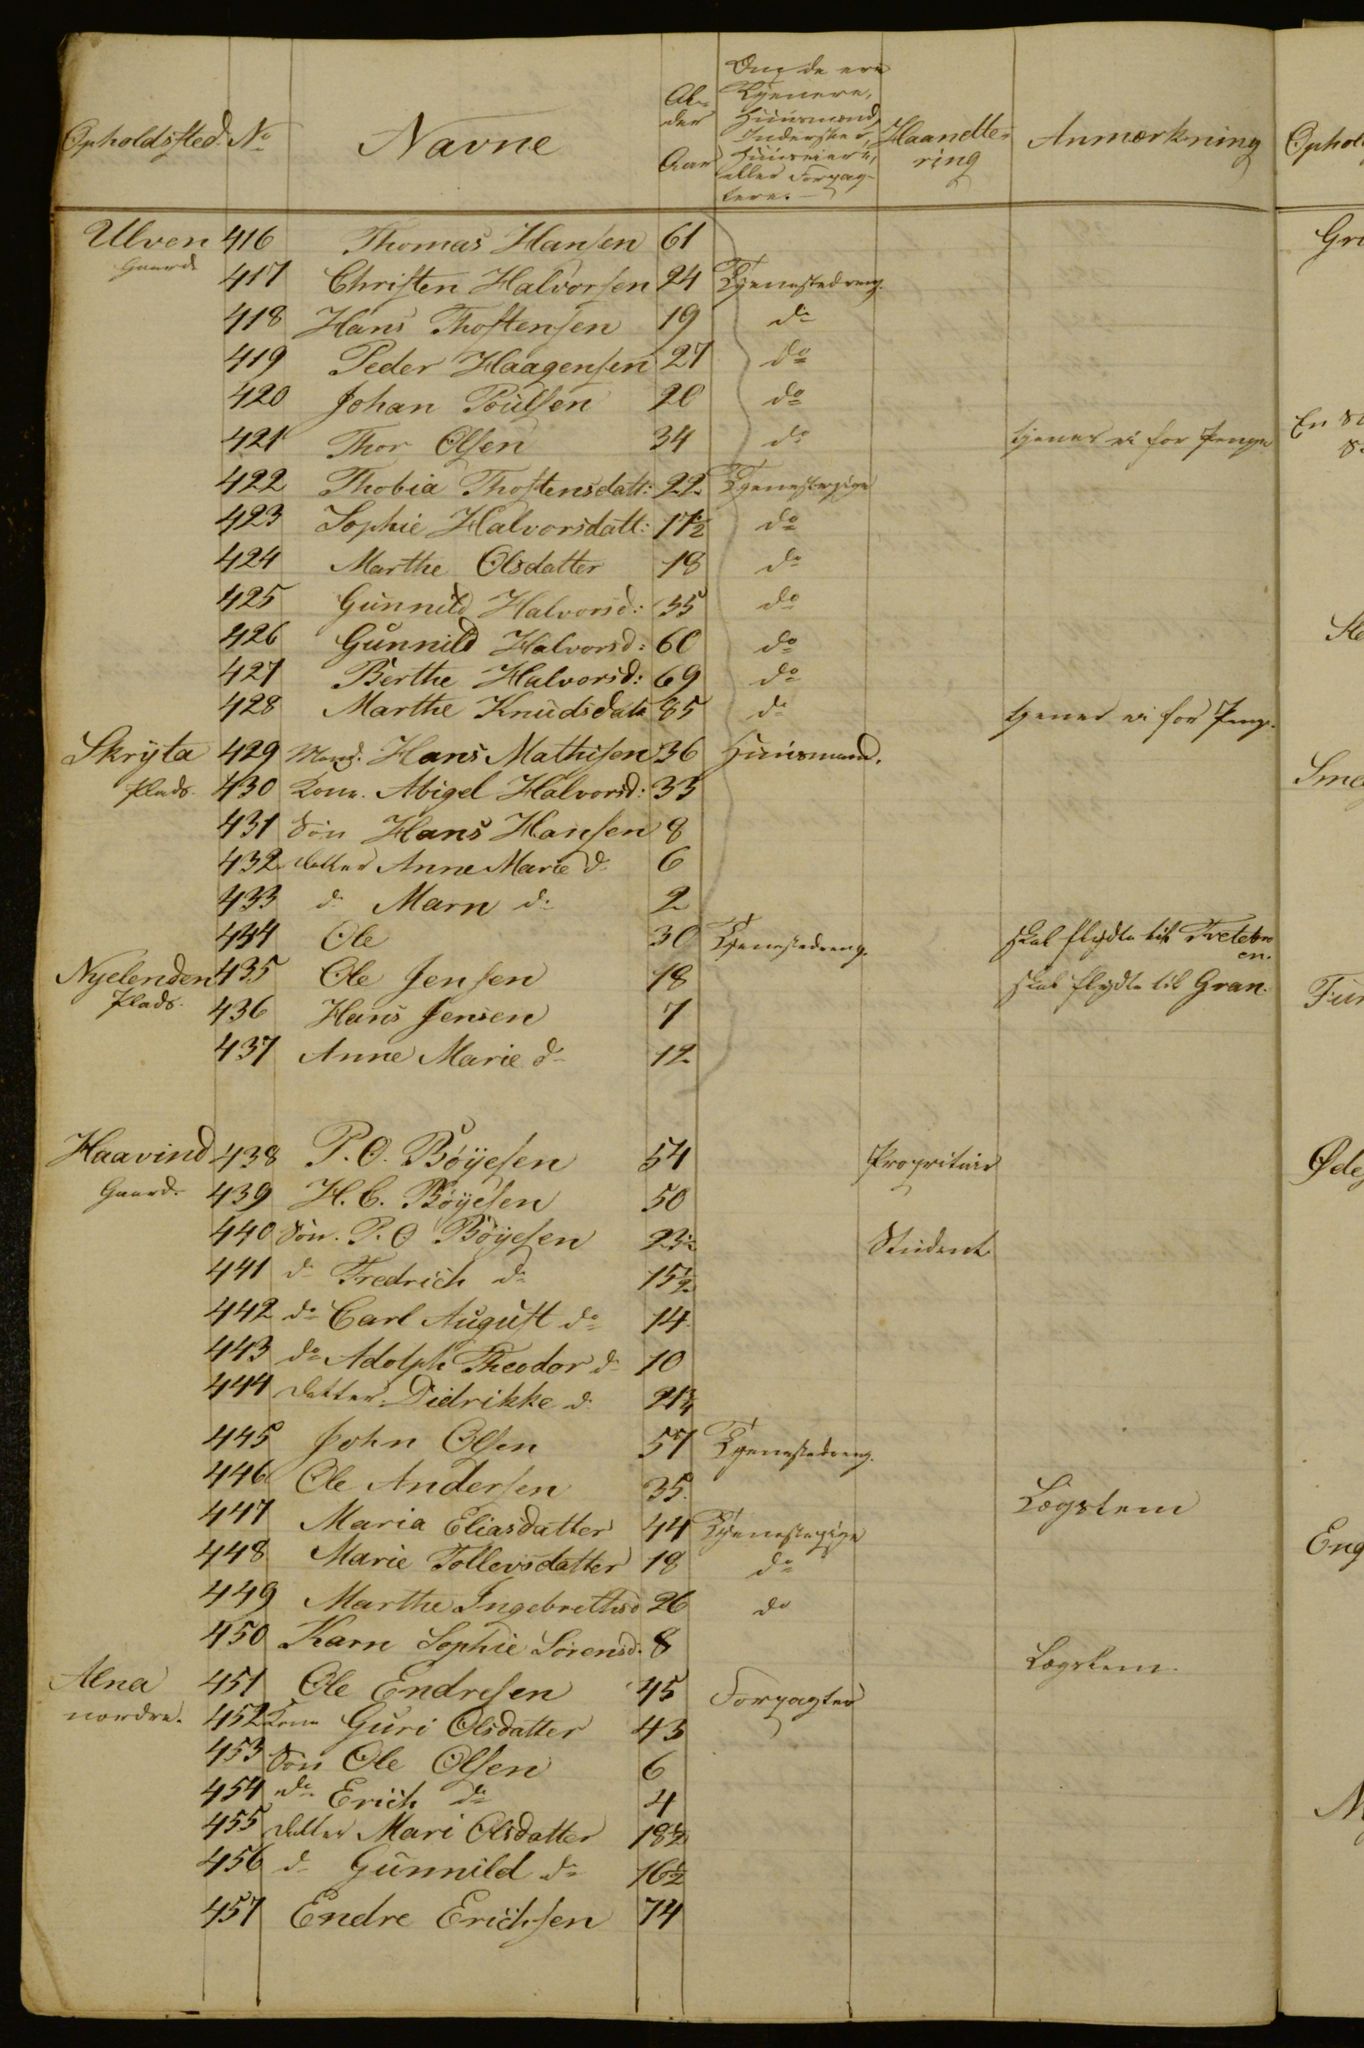 Opholdssted. No Navne Al- der Aar Om de ere Tjenere, Huusmænd, Inderster, Huuseiere, eller Forpag- tere. Haandte- ring Anmærkning
Ulven 416 Thomas Hansen 61
Gaard. 417 Christen Halvorsen 24 Tjenestedreng.
418 Hans Thostensen 19 do
419 Peder Haagensen 27 do
420 Johan Poulsen 20 do
421 Thor Olsen 34 do tjener ei for Penge
422 Thobia Thostensdatt: 22 Tjenestepige
423 Sophie Halvorsdatt: 17½ do
424 Marthe Olsdatter 18 do
425 Gunnild Halvorsd: 35 do
426 Gunnild Halvorsd: 60 do
427 Berthe Halvorsd: 69 do
428 Marthe Knudsdatr 85 do tjener ei for Peng.
Skryta 429 Mand. Hans Mathisen 36 Huusmand.
Plads. 430 Kone. Abigel Halvorsd: 33
431 Søn Hans Hansen 8
432 datter Anne Marie do 6
433 do Marn do 2
434 Ole 30 Tjenestedreng. skal flydte til Tvetebro en.
Nyelenden 435 Ole Jensen 18 skal flydte til Gran.
Plads. 436 Hans Jensen 7
437 Anne Marie do 12
Haavind 438 P. O. Bøyesen 54 Propritair
Gaard. 439 H. C. Bøyesen 50
440 Søn. P. O Bøyesen 23½ Student
441 do Fredrich do 15½
442 do Carl August do 14
443 do Adolph Theodor do 10
444 datter Didrikke do 21¾
445 John Olsen 57 Tjenestedreng.
446 Ole Andersen 35 Lægslem
447 Maria Eliasdatter 44 Tjenestepige
448 Marie Tollevsdatter 18 do
449 Marthe Ingebrethsd 26 do
450 Karn Sophie Sørensd. 8 Lægslem
Alna 451 Ole Endresen 45 Forpagter
nordre. 452 Kone Guri Olsdatter 43
453 Søn Ole Olsen 6
454 do Erich do 4
455 datter Mari Olsdatter 18½
456 do Gunnild do 16½
457 Endre Erichsen 74